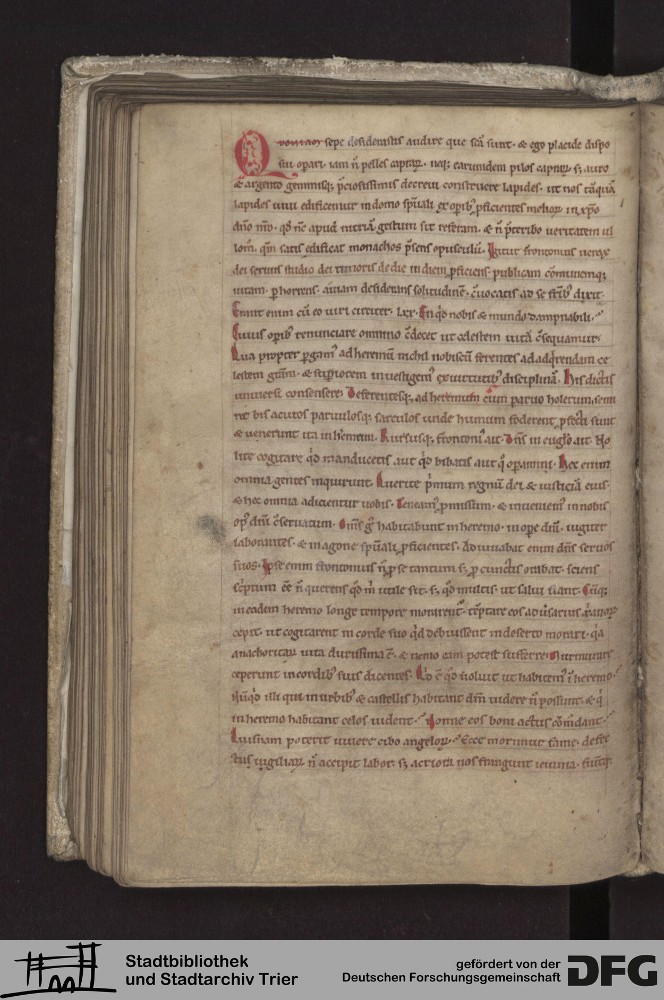 Quoniam sepe desiderastis audire que scā sunt. & ego placide dispo
sui opari. iam n̄ pelles captaꝝ. neq; earundem pilos capraꝝ. sꝫ auro
& argento gemmisq; p̄ciosissimis decreui construere lapides. ut nos tāquā
lapides uiui edificemur in domo sp̄uali ex opib; p̄ficientes melioꝝ in xp̄o
dn̄o nr̄o. qd̄ apud nitriā gestum sit referam. & n̄ p̄teribo ueritatem ul
lom. qm̄ satis edificat monachos p̄sens opusculū. Igitur frontonius
dei seruus studio dei timoris de die in diem p̄ficiens. publicam cōmunemq;
uitam phorrens. desiderans solitudinē. c̄uocatis ad se frīb; dixit.
Erant enim cū eo uiri circiter. lxx. Quid nobis & mundo dampnabili.
Cuius opib; renunciare omnino c̄decet ut celestem uitā c̄sequamur.
Qua propter pgam; ad heremū nichil nobiscū ferentes ad adq̄rendam ce
lestem gr̄am. & supiorem inuestigem; ex uirtutib; disciplinā. His dictis
uniuersi consensere. Deferentesq; ad heremum cum paruo holerum semi
ne bis acutos paruulosq; sarculos unde humum foderent pfecti sunt
& uenerunt ita in heremum. Rursusq; frontoni; ait. Dn̄s in eugl̄o ait. No
lite cogitare qd̄ manducetis aut qd̄ bibatis aut q; opamini. Hec enim
omnia gentes inquirunt. Querite p̄mum regnū dei & iusticiā eius.
& hec omnia adicientur uobis. Teneam; p̄missum. & inueniem; in nobis
op; dn̄i c̄seruatum. Om̄s g̊ habitabunt in heremo. in ope dn̄i. iugiter
laborantes. & in agone sp̄uali p̄ficientes. Adiuuabat enim dn̄s seruos
suos. Ipse enim frontonius n̄ p se tantum sꝫ p cunctis orabat. sciens
sc̄ptum c̄e n̄ querens qd̄ m̄ utile sit. sꝫ qd̄ multis. ut salui fiant. Cūq;
in eadem heremo longe tempore morarent᷑. tēptare eos aduersarius
cepit. ut cogitarent in corde suo qd̄ debuissent in deserto morari. q̇a
anachoritaꝝ uita durissima ē. & nemo eam potest sufferre. Murmurare
ceperunt in cordib; suis dicentes. Qd̄ ē qd̄ uoluit ut habitem; ī heremo.
Nūqd̄ illi qui in urbib; & castellis habitant dm̄ uidere n̄ possunt. & q̇
in heremo habitant celos uident. Nonne eos boni actus cōm̄dant.
Quisnam poterit uiuere cibo angeloꝝ. Ecce morimur fame. defec
tus uigiliaꝝ n̄ accipit labor. sꝫ acriora nos frangunt ieiunia.
Stadtbibliothek
und Stadtarchiv Trier
gefördert von der
Deutschen Forschungsgemeinschaft
DFG